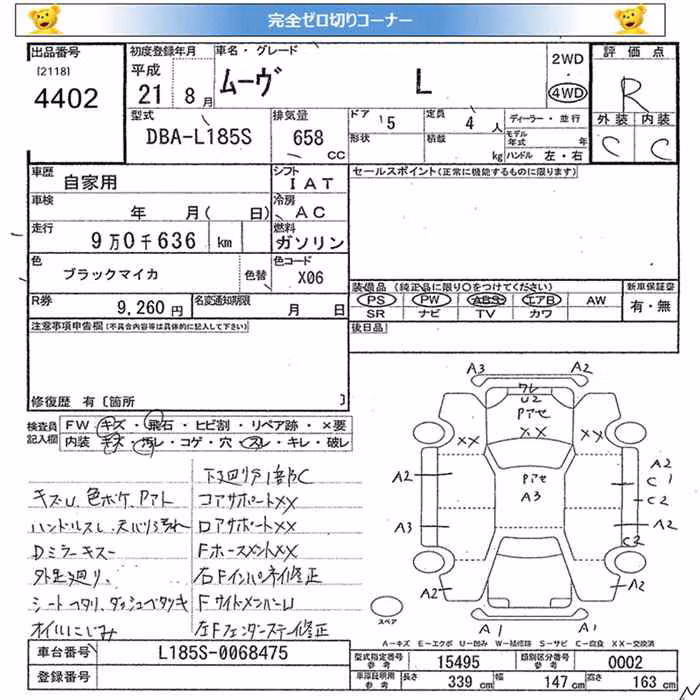 完全ゼロ切りコーナー
出品番号
[2118]
4402
初度登録年月
平成
21 年 8 月
車名・グレード
ムーヴ L
2WD
4WD
評価点
R
外装 内装
C C
型式
DBA-L185S
排気量
658
CC
ドア 5
定員 4 人
形状
積載
kg
ディーラー・並行
モデル
年式 年
ハンドル 左・右
車歴
自家用
シフト
IAT
車検
年 月( 日)
冷房
AC
走行
9万0千636 km
燃料
ガソリン
色
ブラックマイカ
色替
色コード
X06
R券
9,260 円
名変通知期限
月 日
セールスポイント(正常に機能するものに限ります)
装備品(純正品に限り○をつけてください)
PS PW ABS エアB AW
SR ナビ TV カワ
新車保証書
有・無
後日品
注意事項申告欄(不具合内容等は具体的に記入して下さい)
修復歴 有〔箇所 〕
検査員
記入欄
FW キズ・飛石・ヒビ割・リペア跡・×要
内装 キズ・汚レ・コゲ・穴・スレ・キレ・破レ
下廻り分1部C
キズU、色ボケ、Pアト
コアサポートXX
ハンドルスレ、天バリ汚れ
ロアサポートXX
Dミラーキズー
FホースメントXX
外足廻り、
右Fインパネ修正
シートヘタリ、ダッシュベタツキ
FサイドメンバーU
オイルにじみ
左Fフェンダーステー修正
A3
A2
ワレ
U2
Pアセ
XX
XX
XX
A2
A3
Pアセ
A3
A2
C1
C2
A2
C2
A2
A2
A1
A1
スペア
A-キズ E-エクボ U-凹み W-補修跡 S-サビ C-腐食 XX-交換済
車台番号
L185S-0068475
登録番号
型式指定番号
参考
15495
類別区分番号
参考
0002
車庫証明用
参考
長さ 339 cm
幅 147 cm
高さ 163 cm